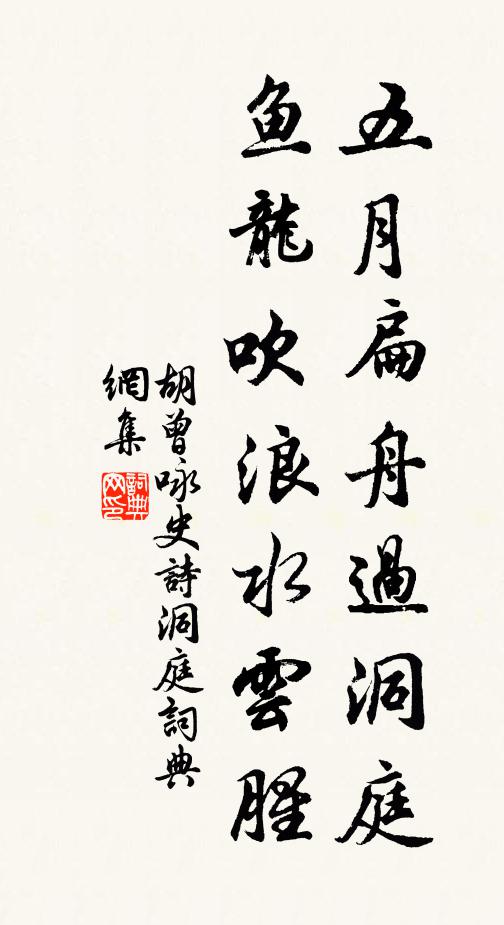 五月扁舟過洞庭
魚龍吹浪水雲腥
胡曾咏史詩洞庭詞典
網集
詞典
网印